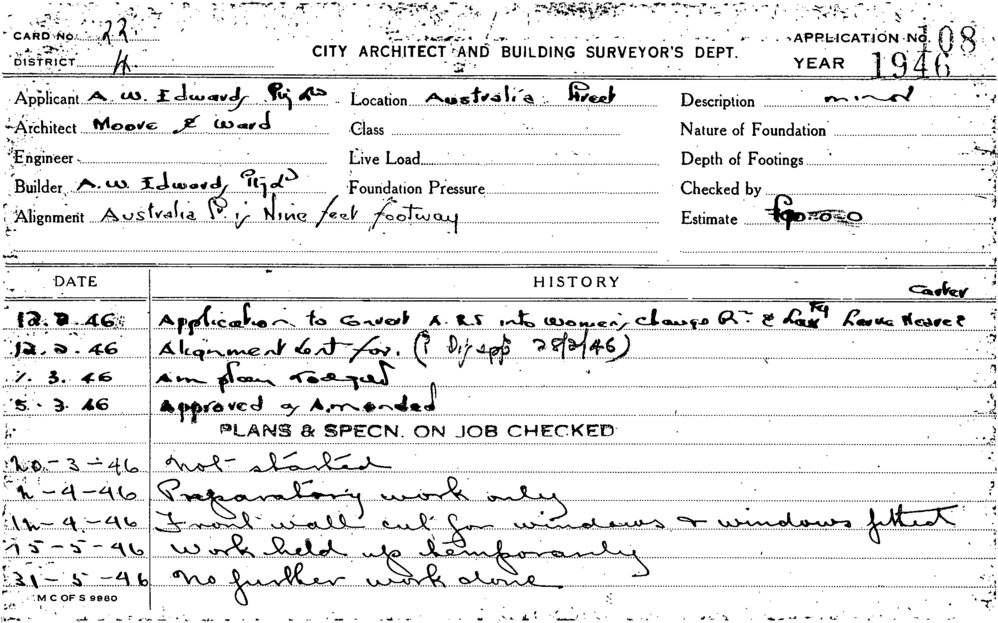 CARD No. 22 APPLICATION No. 108
CITY ARCHITECT AND BUILDING SURVEYOR'S DEPT.
DISTRICT 4 YEAR 1946
Applicant A. W. Edwards Pty Ltd Location Australia Street Description minor
Architect Moore & Ward Class Nature of Foundation
Engineer Live Load Depth of Footings
Builder A. W. Edwards Pty Ltd Foundation Pressure Checked by
Alignment Australia St; Nine feet footway Estimate
DATE HISTORY
Carter
12.2.46 Application to Convert A.R.S into Women's change Rm &
12.2.46 Alignment for. 28/2/46)
1.3.46 Am plan lodged
5.3.46 Approved as Amended
PLANS & SPECN. ON JOB CHECKED
20-3-46 Not started
2-4-46 Preparatory work only
12-4-46 Front wall cut for windows & windows fitted
15-5-46 Work held up temporarily
31-5-46 No further work done
M C OF S 9980